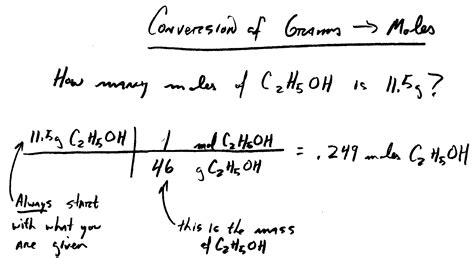 Conversion of Grams → Moles
How many moles of C₂H₅OH is 11.5g?
11.5g C₂H₅OH | 1 mol C₂H₅OH
46 g C₂H₅OH
= .249 moles C₂H₅OH
Always start
with what you
are given
this is the mass
of C₂H₅OH